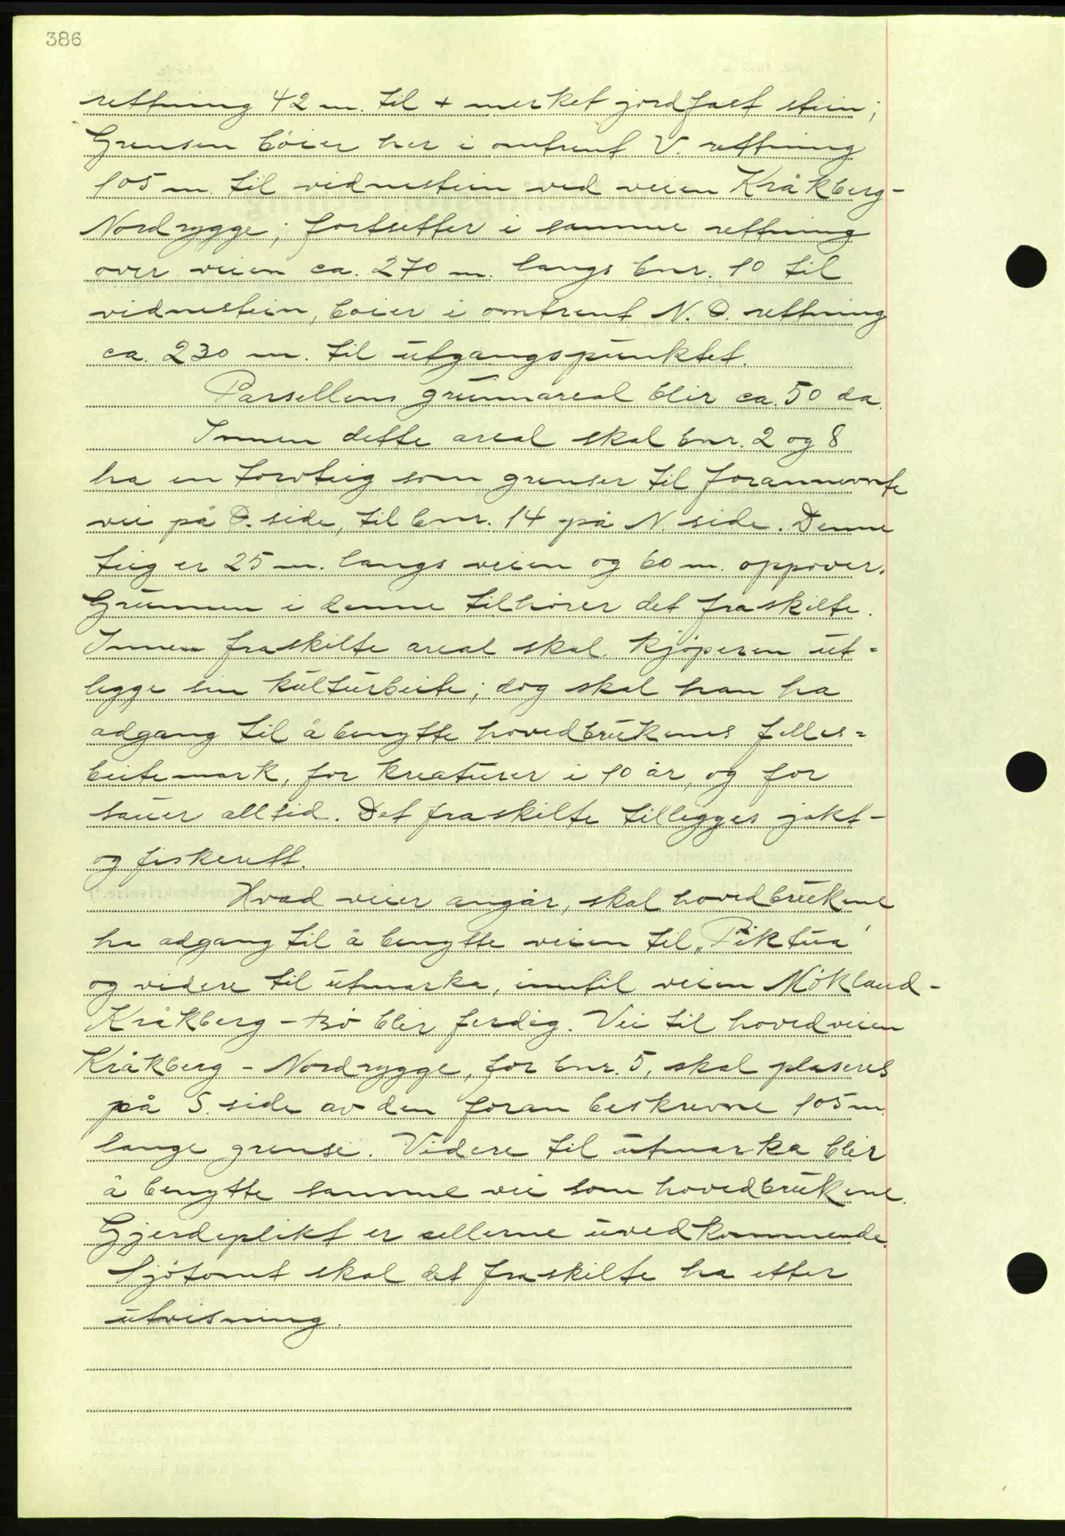 386
rettning 42 m. til + merket jordfast stein;
Grensen böier her i omtrent V. rettning
105 m. til vidnestein ved veien Kråkberg-
Nordrygge; fortsetter i samme rettning
over veien ca. 270 m. langs bnr. 10 til
vidnestein, böier i omtrent N. Ö. rettning
ca. 230 m. til utgangspunktet.
Parsellens grunnareal blir ca. 50 da.
Innen dette areal skal bnr. 2 og 8
ha en torvteig som grenser til forannevnte
vei på Ö. side, til bnr. 14 på N. side. Denne
teig er 25 m. langs veien og 60 m. oppover.
Grunnen i denne tilhörer det fraskilte.
Innen fraskilte areal skal kjöperen ut-
legge sin kulturbeite; dog skal han ha
adgang til å benytte hovedbrukenes felles-
beitemark, for kreaturer i 10 år, og for
sauer alltid. Det fraskilte tillegges jakt-
og fiskerett.
Hvad veier angår, skal hovedbrukene
ha adgang til å benytte veien til „Piktua"
og videre til utmarka, inntil veien Mökland-
Kråkberg-Bö blir ferdig. Vei til hovedveien
Kråkberg - Nordrygge, for bnr. 5, skal plaseres
på S. side av den foran beskrevne 105 m.
lange grense. Videre til utmarka blir
å benytte samme vei som hovedbrukene.
Gjerdeplikt er sellerne uvedkommende.
Sjötomt skal det fraskilte ha etter
utvisning.